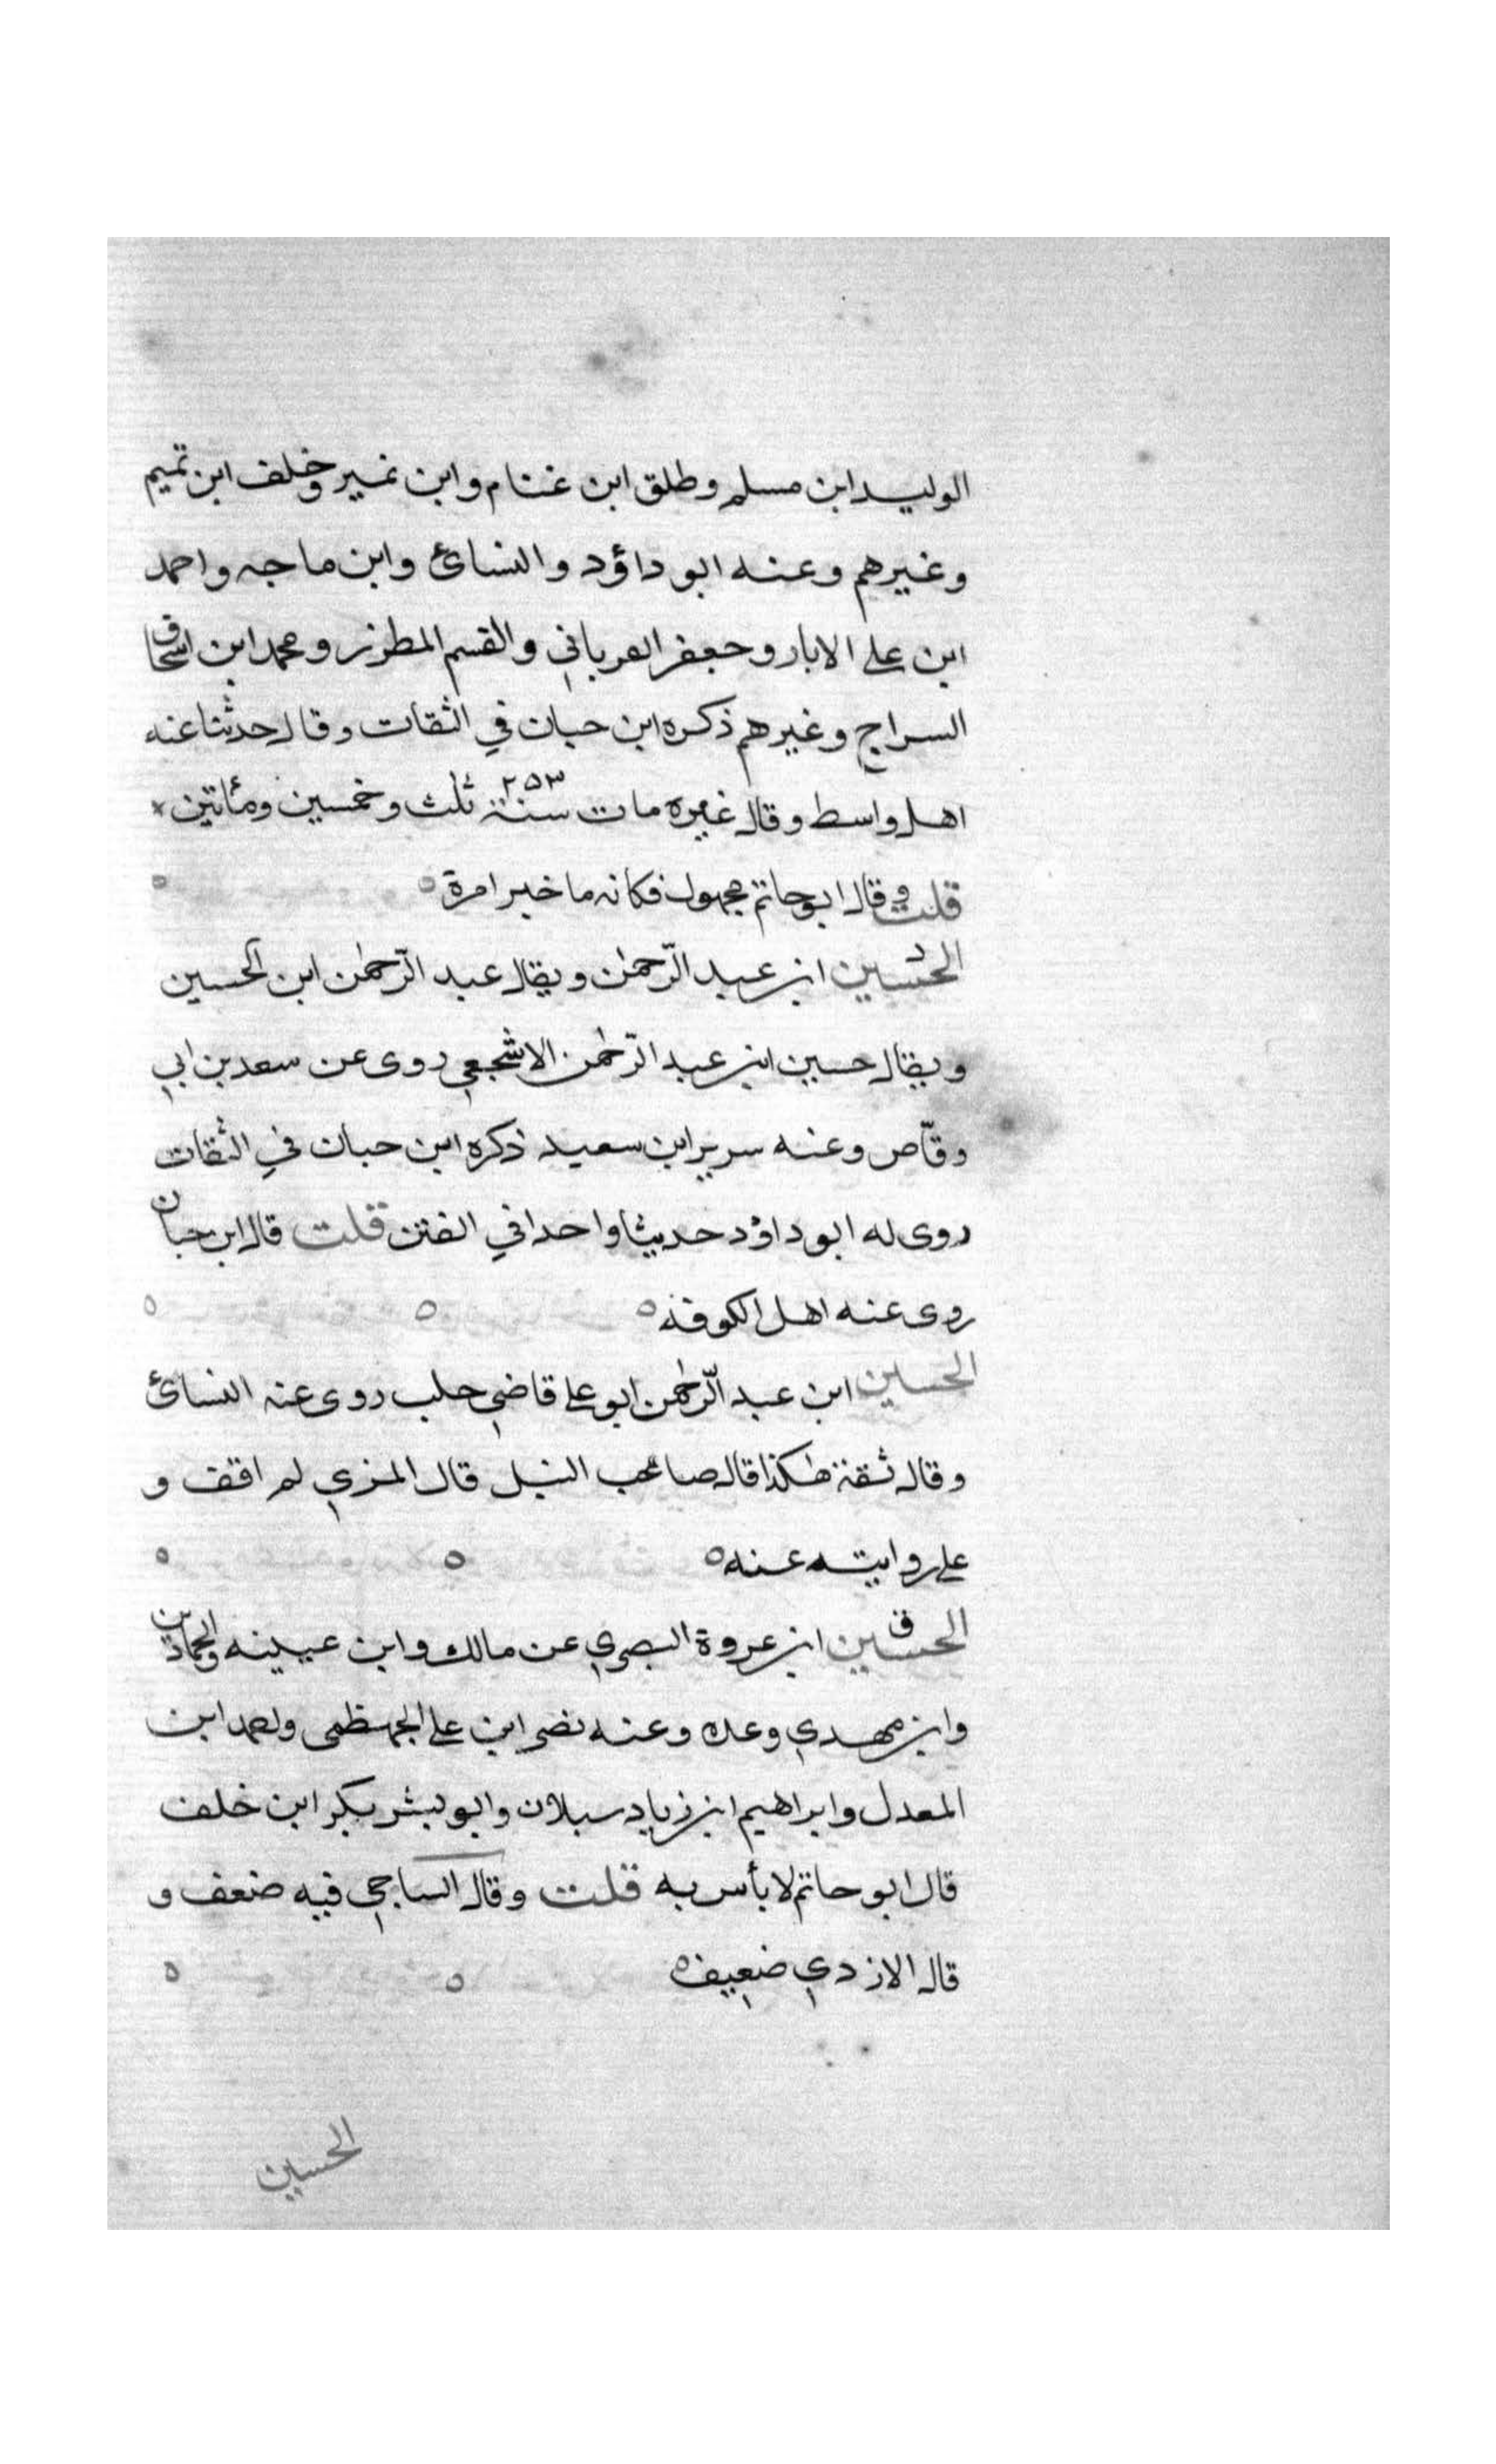 الوليد ابن مسلم وطلق ابن غنام وابن نمير وخلف ابن تميم
وغيرهم وعنه ابو داؤد والنسائ وابن ماجه واحمد
ابن علي الابار وجعفر العرباني والقسم المطرز ومحمد ابن اسحاق
السراج وغيرهم ذكره ابن حبان في الثقات وقال حدثنا عنه
اهل واسط وقال غيره مات سنة ٢٥٣ ثلث وخمسين ومأتين
قلت وقال ابو حاتم مجهول فكانه ما خبر امرة
الحسين ابن عبد الرّحمٰن ويقال عبد الرّحمٰن ابن الحسين
ويقال حسين ابن عبد الرّحمٰن الاشجعي روى عن سعد بن ابي
وقّاص وعنه سرير ابن سعيد ذكره ابن حبان في الثقات
روى له ابو داؤد حديثا واحدا في الفتن قلت قال ابن حبان
روى عنه اهل الكوفة
الحسين ابن عبد الرّحمٰن ابو علي قاضي حلب روى عنه النسائ
وقال ثقة هٰكذا قال صاحب النبل قال المزي لم اقف و
على روايته عنه
الحسين ق ابن عروة البصري عن مالك وابن عيينه والحمادين
وابن مهدي وعده وعنه نصر ابن علي الجهظمى ولحمد ابن
المعدل وابراهيم ابن زياد سبلان وابو بشر بكر ابن خلف
قال ابو حاتم لا بأس به قلت وقال الساجي فيه ضعف و
قال الازدي ضعيف
الحسين